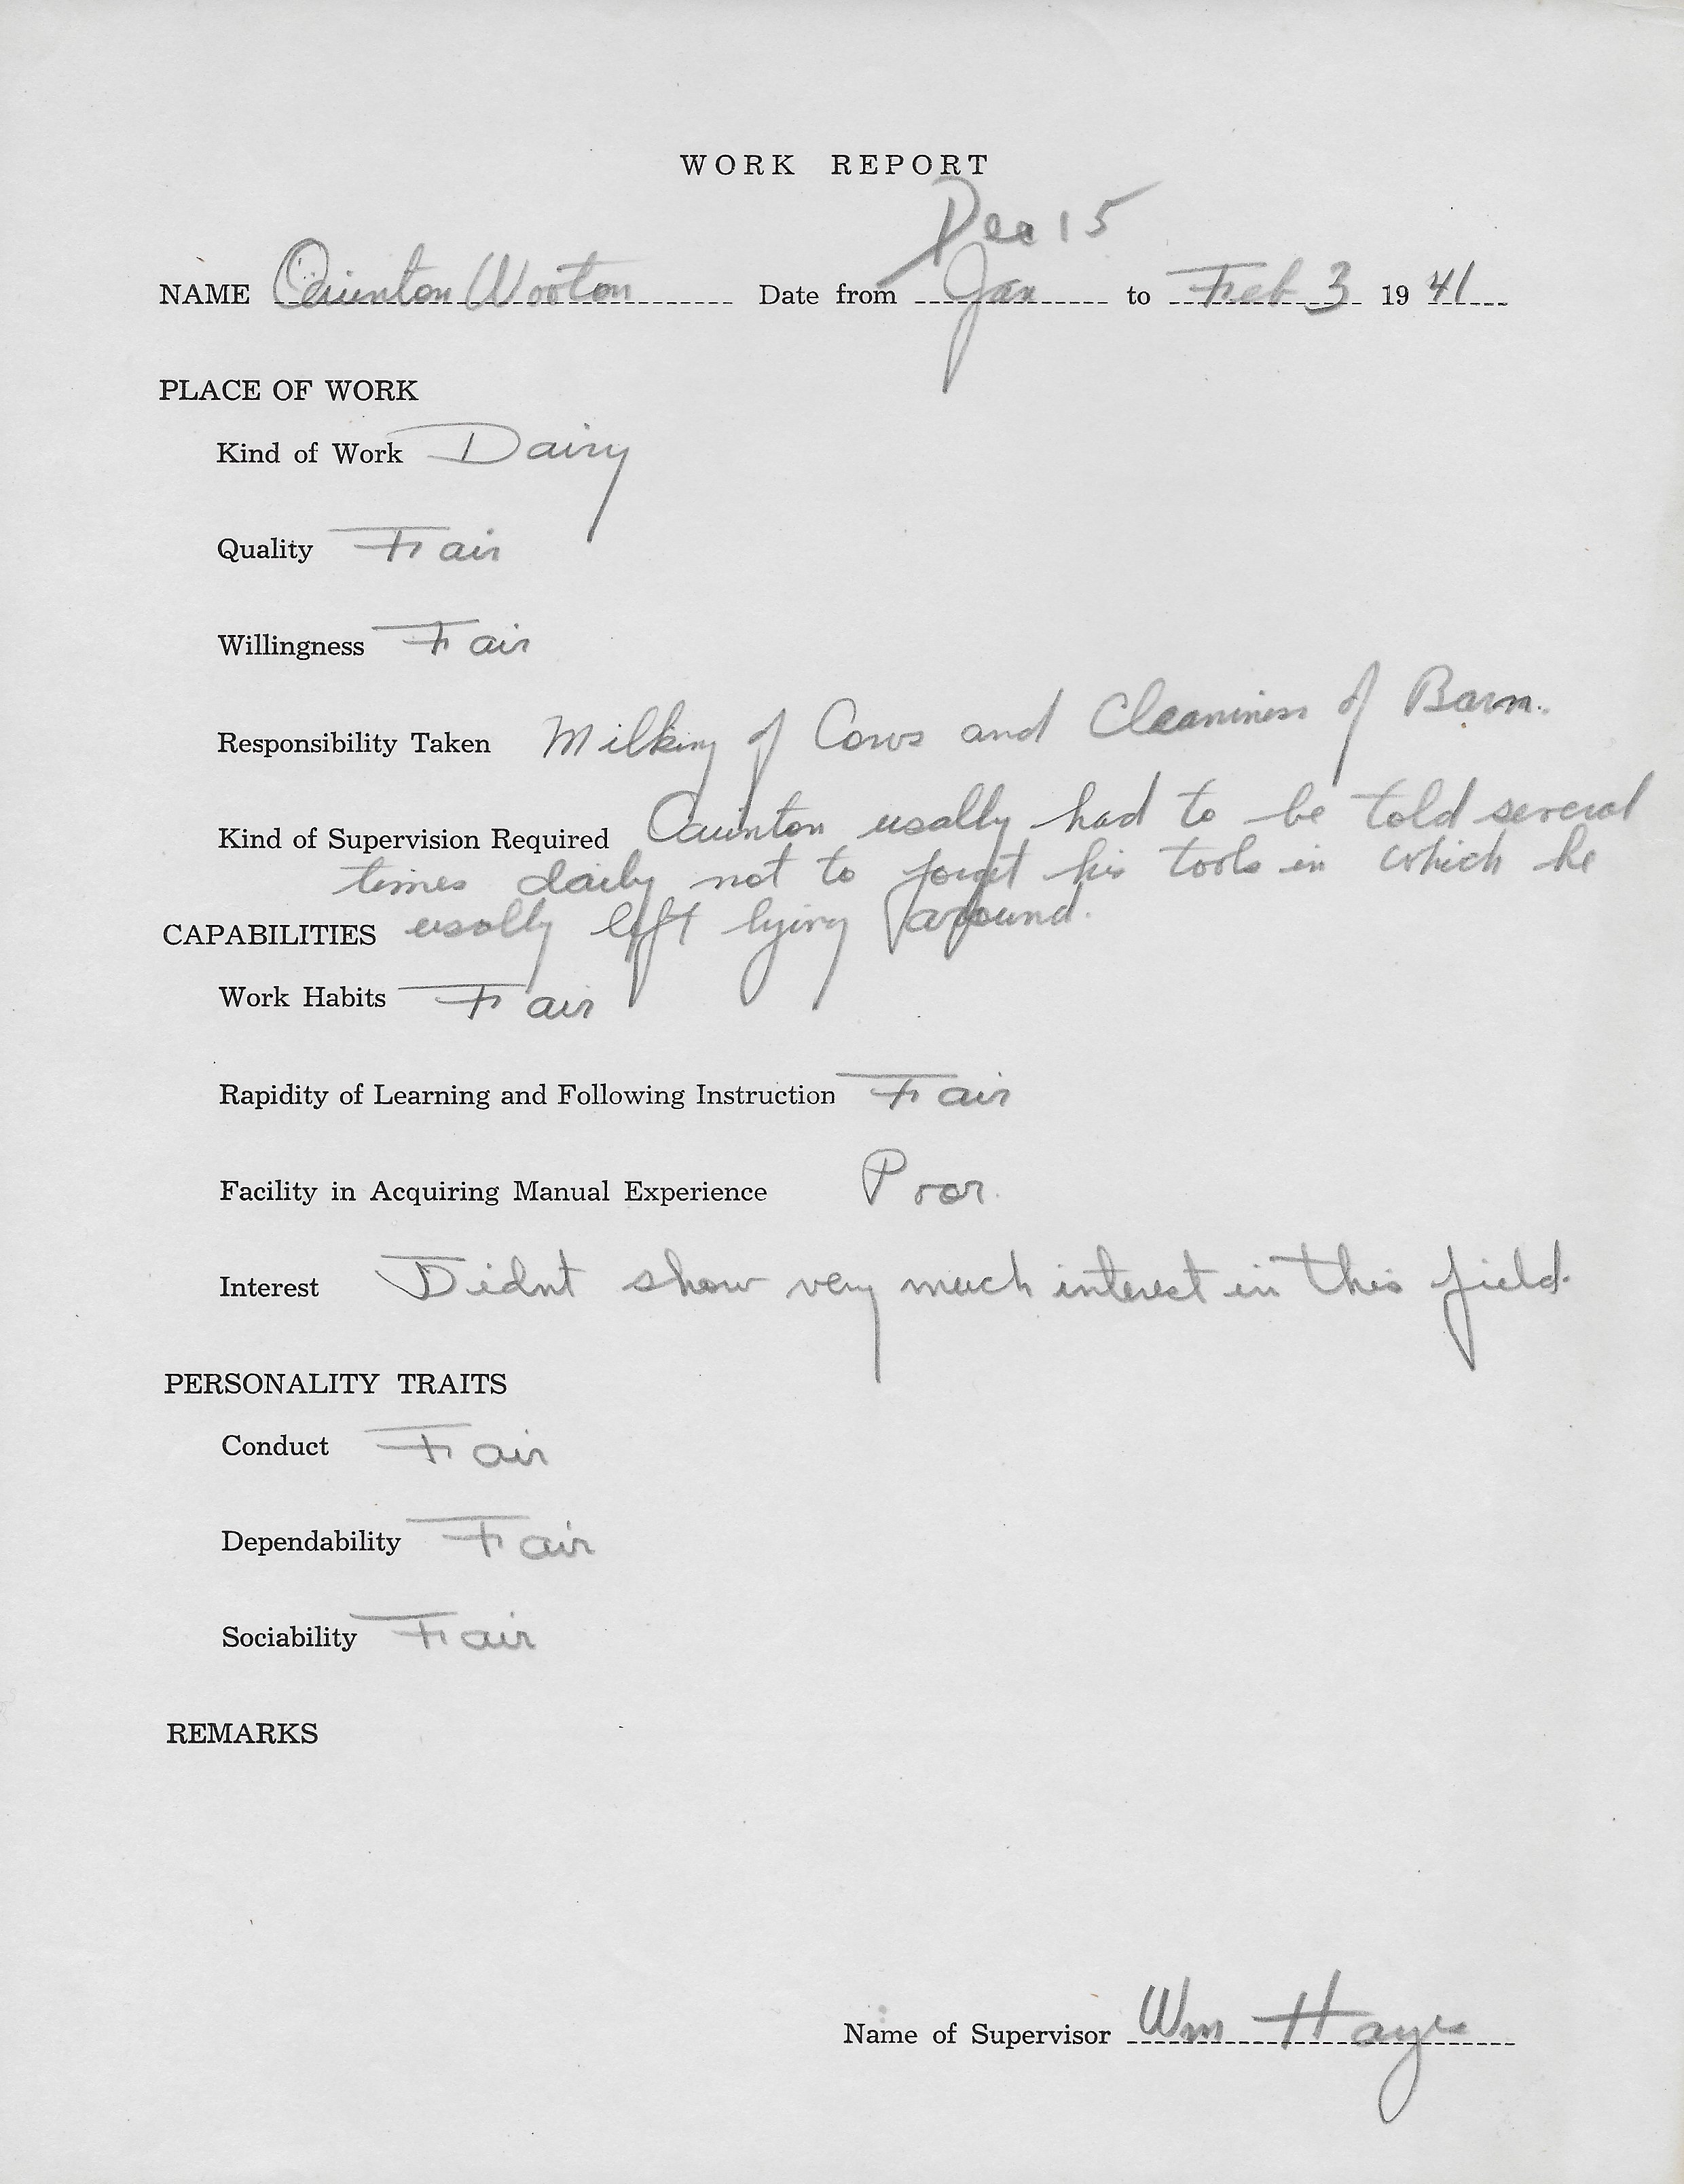 WORK REPORT
Dec 15
NAME Quinton Wooton Date from Jan to Feb 3 19 41
PLACE OF WORK
Kind of Work Dairy
Quality Fair
Willingness Fair
Responsibility Taken Milking of Cows and Cleaniness of Barn.
Kind of Supervision Required Quinton usally had to be told several
times daily not to forget his tools in which he
CAPABILITIES usally left lying around.
Work Habits Fair
Rapidity of Learning and Following Instruction Fair
Facility in Acquiring Manual Experience Poor.
Interest Didnt show very much interest in this field.
PERSONALITY TRAITS
Conduct Fair
Dependability Fair
Sociability Fair
REMARKS
Name of Supervisor Wm Hays